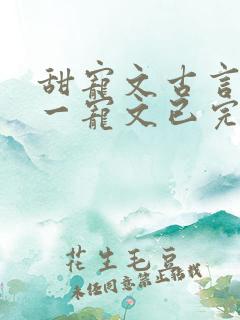 甜寵文古言
一寵文已完
花生毛豆
未经同意禁止转载